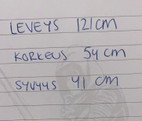 LEVEYS 121 cm
KORKEUS 54 cm
SYVYYS 41 cm